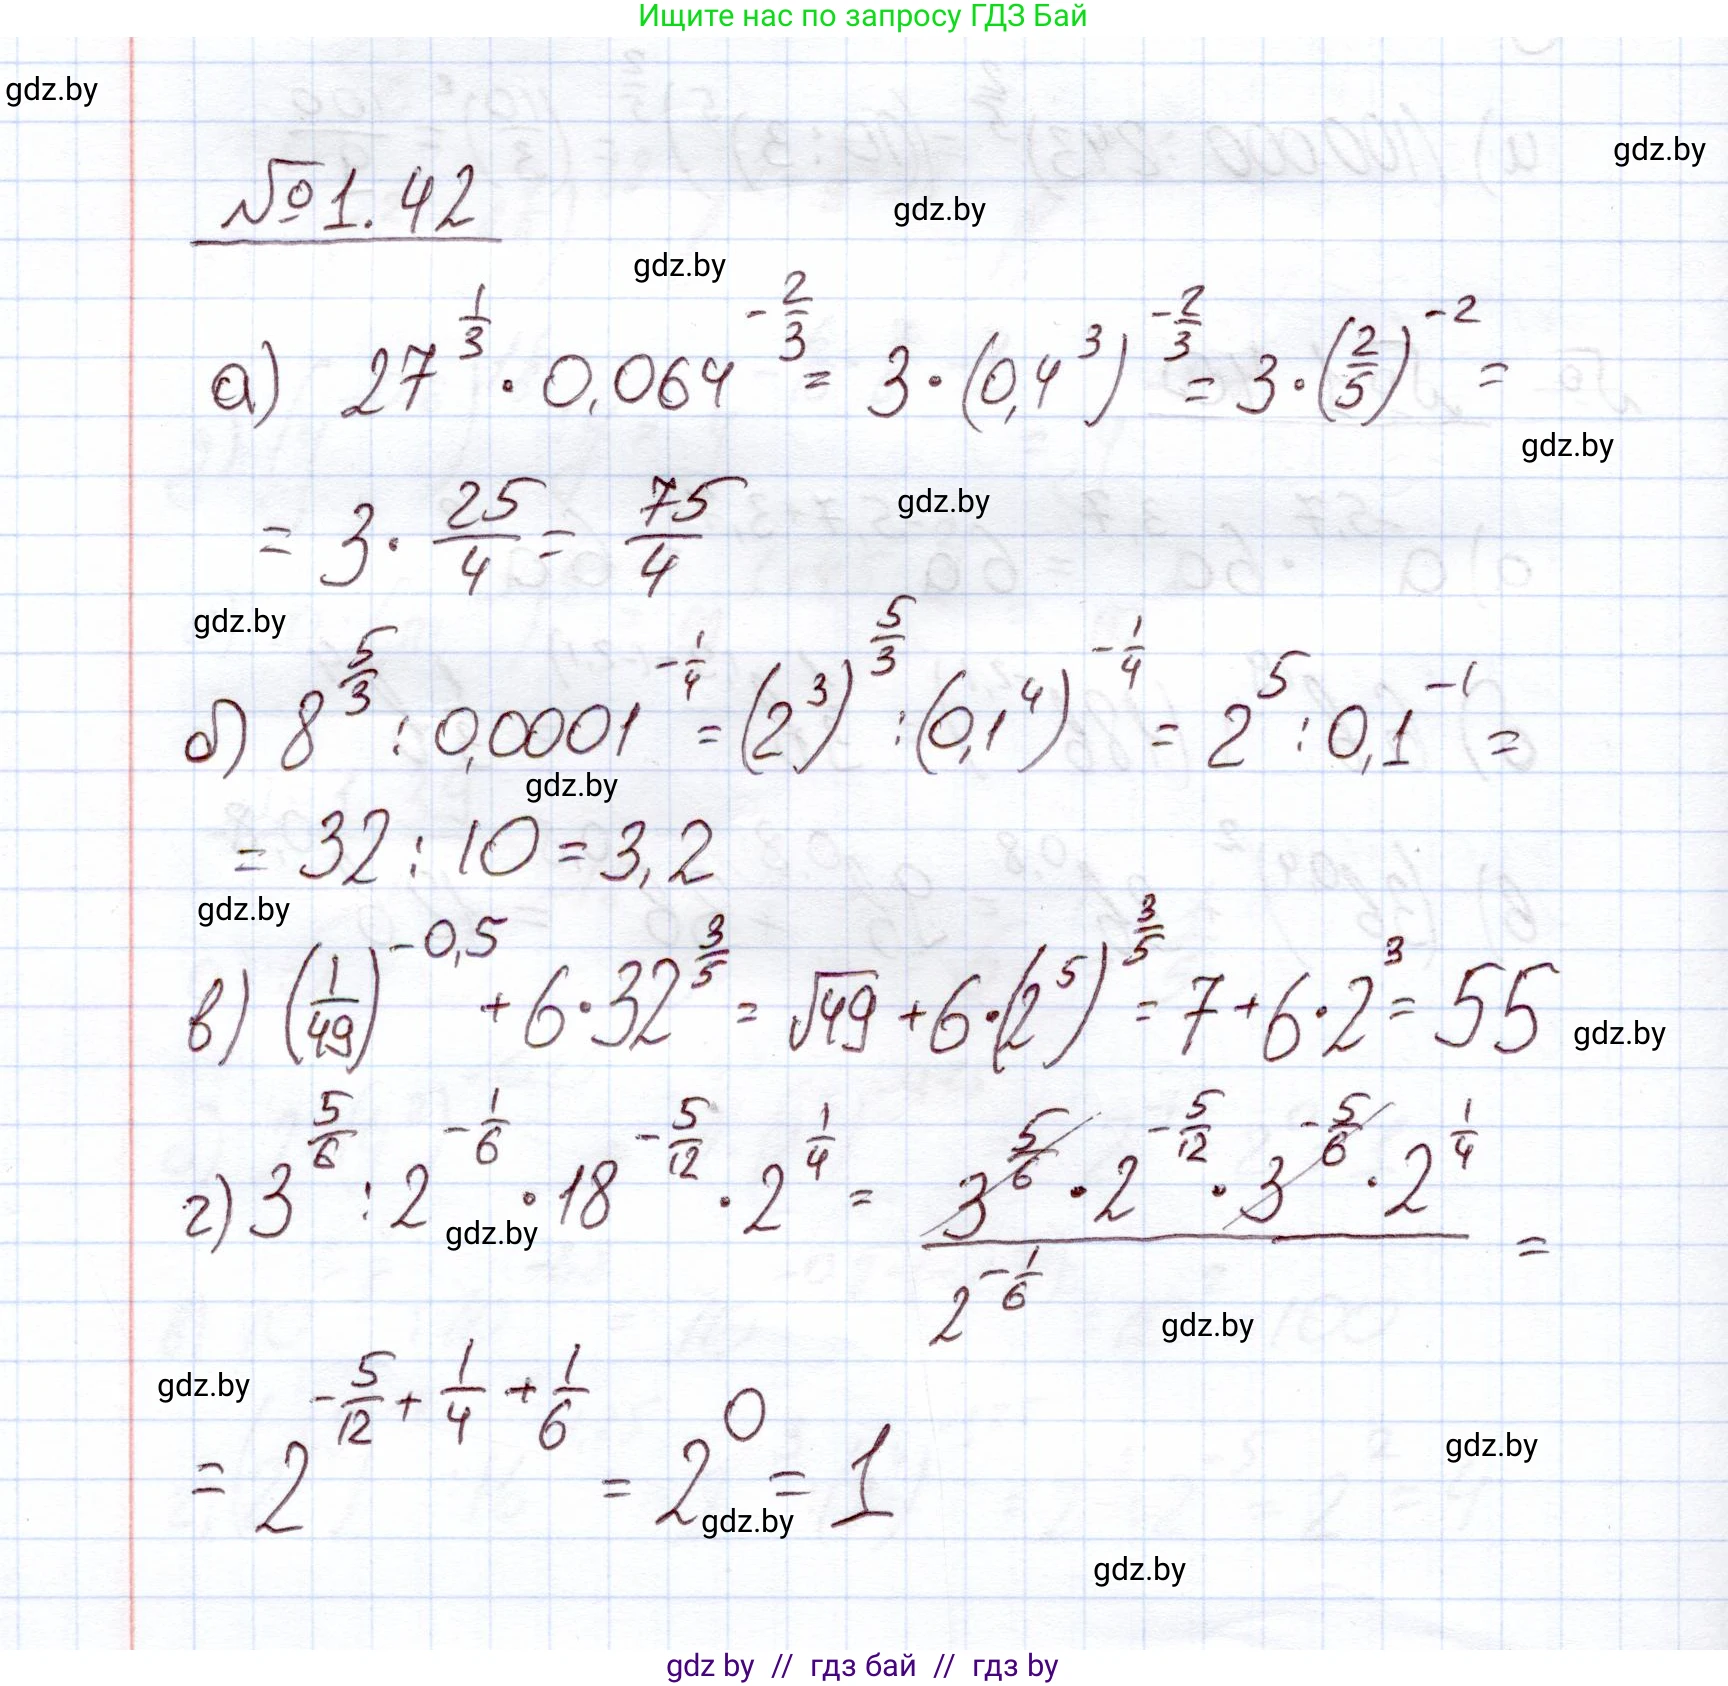 Ищите нас по запросу ГДЗ Бай
gdz.by
gdz.by
№1.42
gdz.by
gdz.by
а) 27^(1/3) · 0,064^(-2/3) = 3 · (0,4^3)^(-2/3) = 3 · (2/5)^(-2) =
gdz.by
= 3 · 25/4 = 75/4
gdz.by
gdz.by
б) 8^(5/3) : 0,0001^(-1/4) = (2^3)^(5/3) : (0,1^4)^(-1/4) = 2^5 : 0,1^(-1) =
gdz.by
= 32 : 10 = 3,2
gdz.by
в) (1/49)^(-0,5) + 6 · 32^(3/5) = √49 + 6 · (2^5)^(3/5) = 7 + 6 · 2^3 = 55
gdz.by
г) 3^(5/6) : 2^(-1/6) · 18^(-5/12) · 2^(1/4) = (3^(5/6) · 2^(-5/12) · 3^(-5/6) · 2^(1/4)) / 2^(-1/6) =
gdz.by
gdz.by
gdz.by
= 2^(-5/12 + 1/4 + 1/6) = 2^0 = 1
gdz.by
gdz.by
gdz.by
gdz by // гдз бай // гдз by